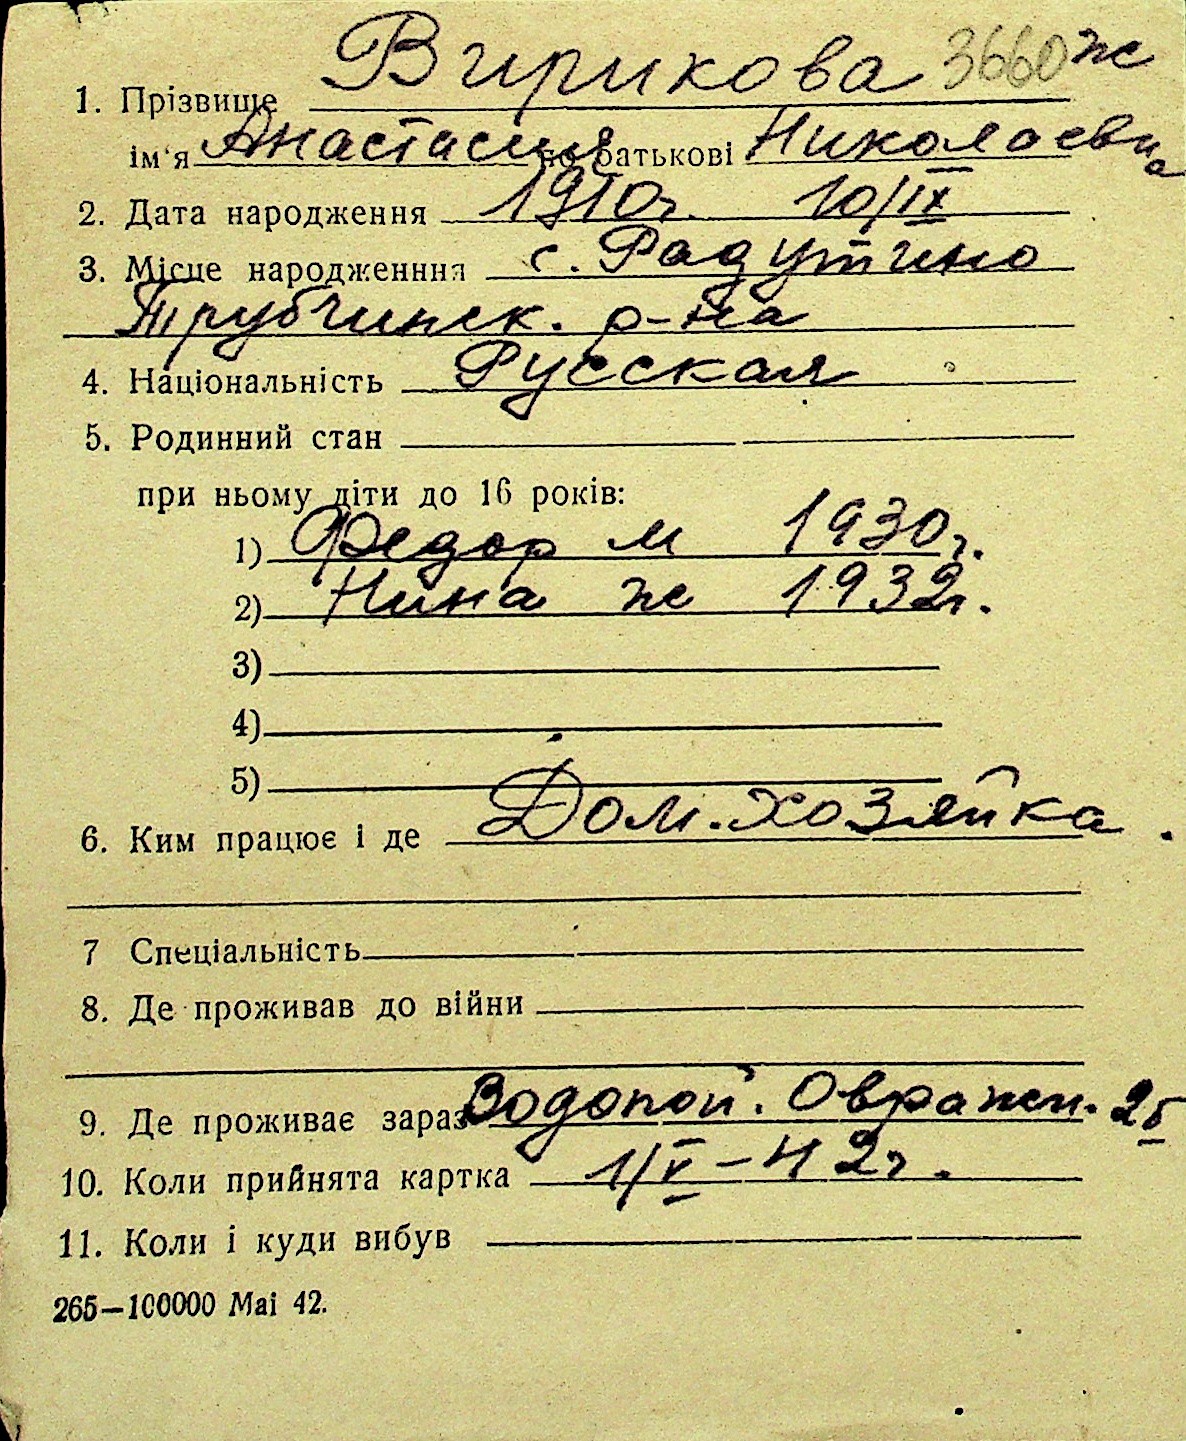 1. Прізвище Вирикова 3660 ж
ім'я Анастасия по батькові Николаевна
2. Дата народження 1910г. 10/IX
3. Місце народженння с. Радутино
Трубчинск. р-на
4. Національність Русская
5. Родинний стан
при ньому діти до 16 років:
1) Федор м 1930г.
2) Нина ж 1932г.
3)
4)
5)
6. Ким працює і де Дом. хозяйка.
7 Спеціальність
8. Де проживав до війни
9. Де проживає зараз Водопой. Овражн. 2б
10. Коли прийнята картка 1/V-42г.
11. Коли і куди вибув
265—100000 Mai 42.